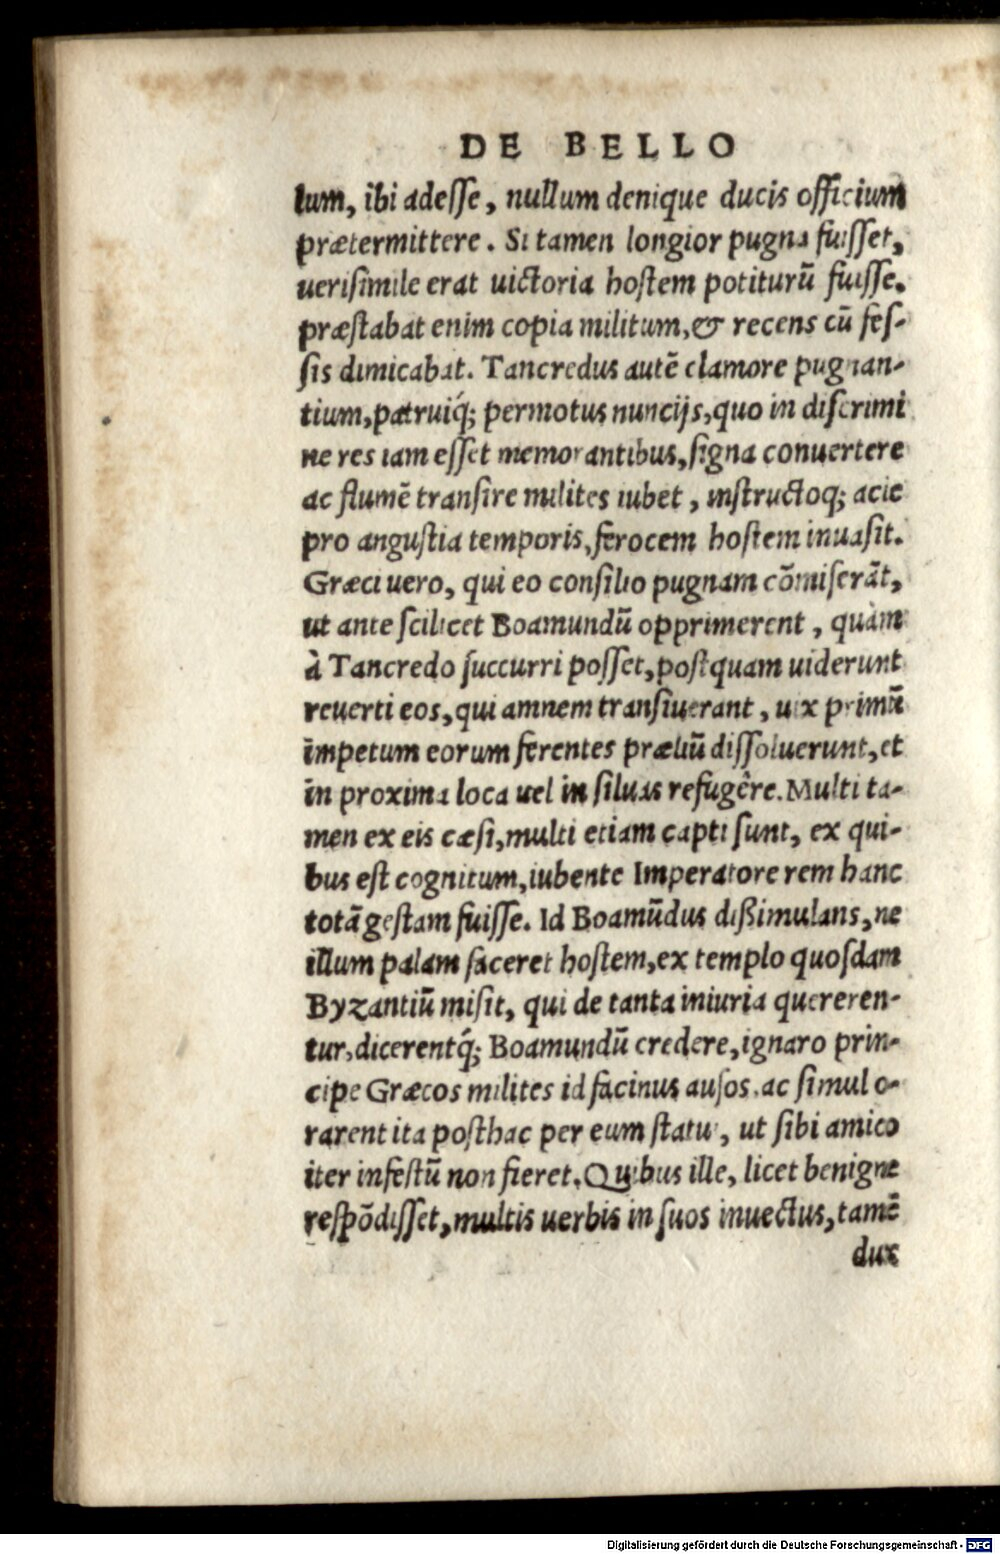 DE BELLO
lum, ibi adesse, nullum denique ducis officium
prætermittere. Si tamen longior pugna fuisset,
uerisimile erat uictoria hostem potiturũ fuisse.
præstabat enim copia militum, & recens cũ fes-
sis dimicabat. Tancredus autẽ clamore pugnan-
tium, patruiq́; permotus nuncijs, quo in discrimi
ne res iam esset memorantibus, signa conuertere
ac flumẽ transire milites iubet, instructoq; acie
pro angustia temporis, ferocem hostem inuasit.
Græci uero, qui eo consilio pugnam cõmiserãt,
ut ante scilicet Boamundũ opprimerent, quàm
à Tancredo succurri posset, postquam uiderunt
reuerti eos, qui amnem transiuerant, uix primũ
impetum eorum ferentes præliũ dissoluerunt, et
in proxima loca uel in siluas refugêre. Multi ta-
men ex eis cæsi, multi etiam capti sunt, ex qui-
bus est cognitum, iubente Imperatore rem hanc
totã gestam fuisse. Id Boamũdus dißimulans, ne
illum palam faceret hostem, ex templo quosdam
Byzantiũ misit, qui de tanta iniuria quereren-
tur, dicerentq́; Boamundũ credere, ignaro prin-
cipe Græcos milites id facinus ausos, ac simul o-
rarent ita posthac per eum statui, ut sibi amico
iter infestũ non fieret. Quibus ille, licet benigne
respõdisset, multis uerbis in suos inuectus, tamẽ
dux
Digitalisierung gefördert durch die Deutsche Forschungsgemeinschaft - DFG